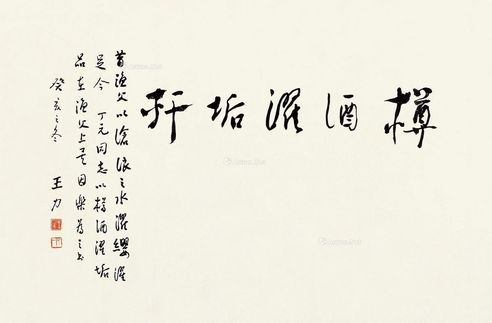 樽酒濯垢軒
昔漁父以滄浪之水濯纓濯
足今 丁元同志以樽酒濯垢
品在漁父上矣因樂為之書
癸亥之冬 王力